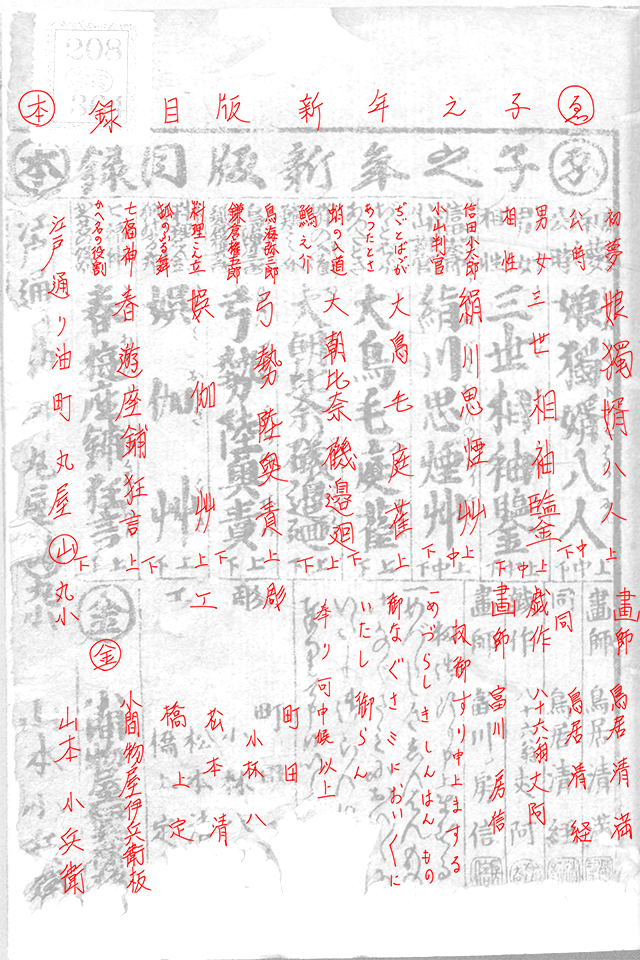 ゑ 子 之 年 新 版 目 録 本
初夢 娘獨婿八人 上
公時 中 下
男女 三世相袖鑒 上
相性 中 下
信田小太郎 絹川思煙艸 上
小山判官 中 下
ぢいとばゞが 大鳥毛庭雀 上
あつたとさ 下
蛸の入道 大朝比奈磯邉廻 上
鯛之介 下
鳥海弥三郎 弓勢陸奥責 上
鎌倉権五郎 下
料理こん立 娯伽艸 上
狐のふる舞 下
七福神 春遊座鋪狂言 上
かへ名の役割 下
江戸通り油町 丸屋 山 丸小
畫師 鳥居清満
同 鳥居清経
戯作 八十六翁丈阿
畫師 富川房信
板御すり中上まする
一めづらしきしんはんもの
御なぐさミにおいくに
いたし御らん
奉り可中候以上
町田
彫 小林八
工 松本清
橋上定
金 小間物屋伊兵衛板
山本小兵衛
208